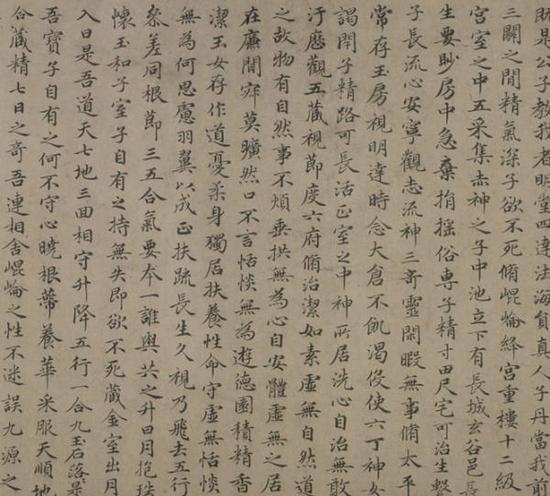 既是公子教我者明堂四達法海負真人子丹當我前
三關之間精氣深子欲不死脩崐崘絳宮重樓十二級
宮室之中五采集赤神之子中池立下有長城玄谷邑長
生要眇房中急棄捐搖俗專子精寸田尺宅可治生繫
子長流心安寧觀志流神三奇靈閑暇無事脩太平
常存玉房視明達時念大倉不飢渴役使六丁神女
謁閉子精路可長活正室之中神所居洗心自治無敢
汙歷觀五藏視節度六府脩治潔如素虛無自然道
之故物有自然事不煩垂拱無為心自安體虛無之居
在廉間寂莫曠然口不言恬惔無為遊德園積精香
潔玉女存作道憂柔身獨居扶養性命守虛無恬惔
無為何思慮羽翼以成正扶疏長生久視乃飛去五行
參差同根節三五合氣要本一誰與共之升日月抱珠
懷玉和子室子自有之持無失即欲不死藏金室出月
入日是吾道天七地三回相守升降五行一合九玉石落是
吾寶子自有之何不守心曉根蒂養華采服天順地
合藏精七日之奇吾連相舍崐崘之性不迷誤九源之